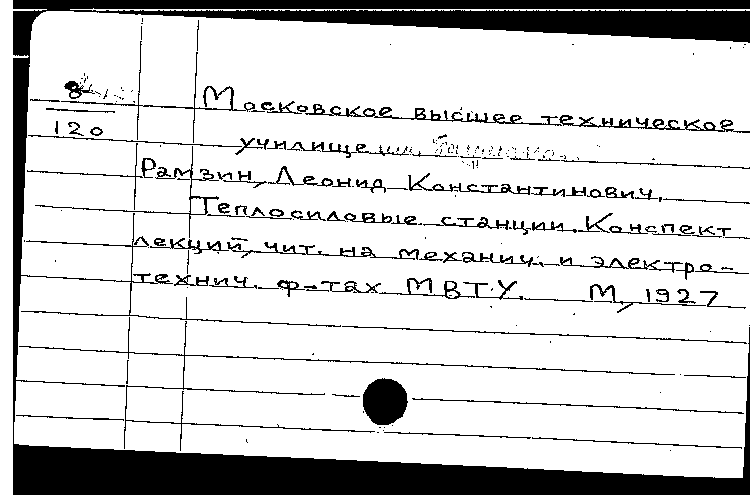 8
120
Московское высшее техническое
училище им.
Рамзин, Леонид Константинович.
Теплосиловые станции. Конспект
лекций, чит. на механич. и электро-
технич. ф-тах МВТУ. М, 1927